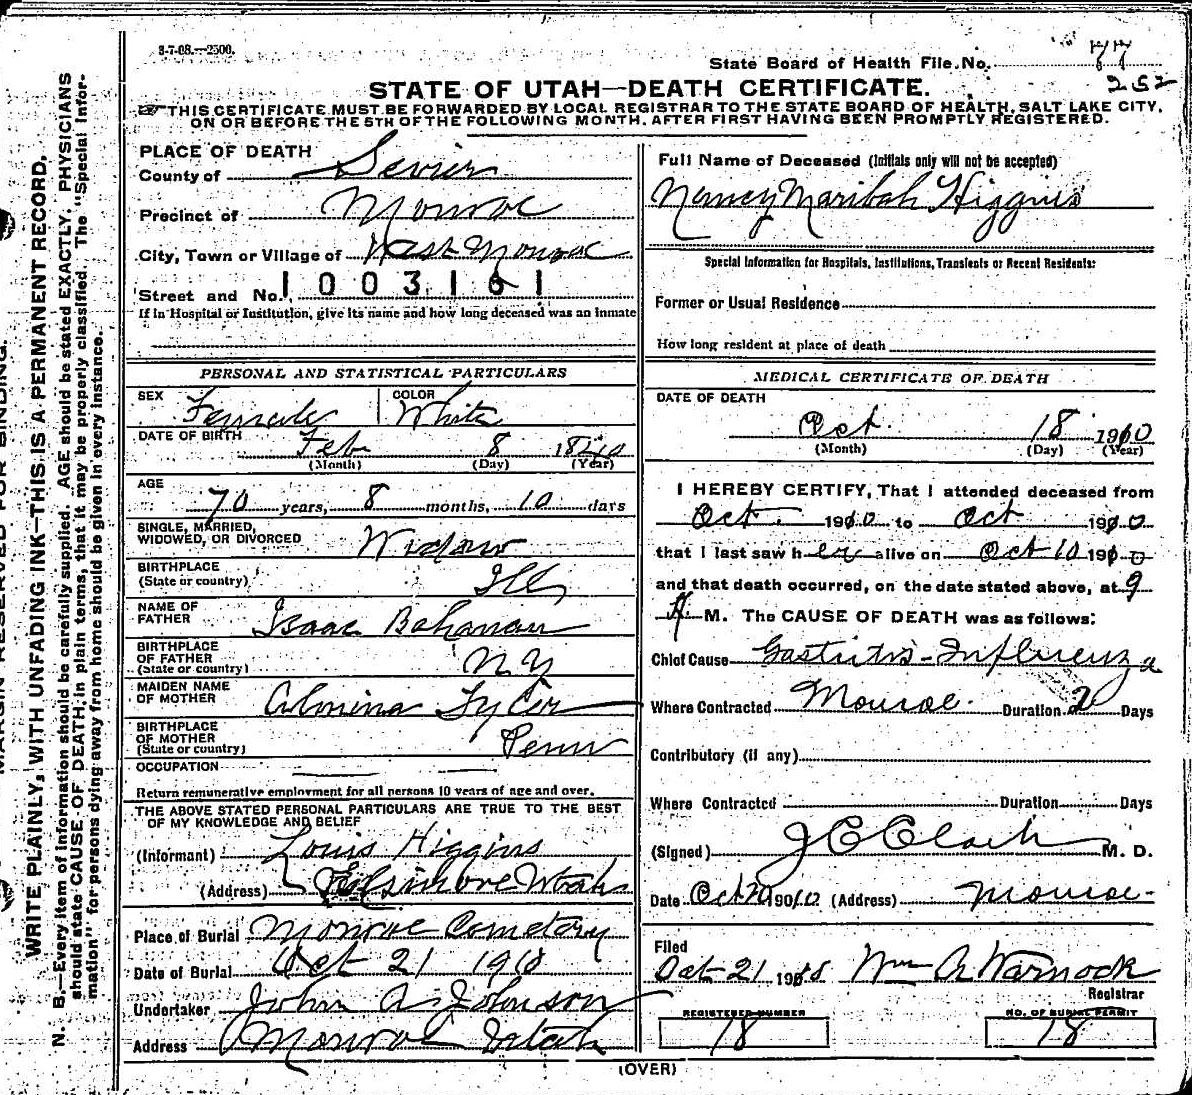 3-7-08.—2500.
State Board of Health File No. 77
252
STATE OF UTAH—DEATH CERTIFICATE.
THIS CERTIFICATE MUST BE FORWARDED BY LOCAL REGISTRAR TO THE STATE BOARD OF HEALTH, SALT LAKE CITY,
ON OR BEFORE THE 5TH OF THE FOLLOWING MONTH, AFTER FIRST HAVING BEEN PROMPTLY REGISTERED.
PLACE OF DEATH
County of Sevier
Precinct of Monroe
City, Town or Village of West Monroe
Street and No. 1003161
If in Hospital or Institution, give its name and how long deceased was an inmate
PERSONAL AND STATISTICAL PARTICULARS
SEX Female COLOR White
DATE OF BIRTH Feb 8 1840
(Month) (Day) (Year)
AGE
70 years, 8 months, 10 days
SINGLE, MARRIED,
WIDOWED, OR DIVORCED Widow
BIRTHPLACE
(State or country) Ill
NAME OF
FATHER Isaac Behanan
BIRTHPLACE
OF FATHER
(State or country) N Y
MAIDEN NAME
OF MOTHER Almina Tyler
BIRTHPLACE
OF MOTHER
(State or country) Penn
OCCUPATION
Return remunerative employment for all persons 10 years of age and over.
THE ABOVE STATED PERSONAL PARTICULARS ARE TRUE TO THE BEST
OF MY KNOWLEDGE AND BELIEF
(Informant) Louis Higgins
(Address) Elsinore Utah
Place of Burial Monroe Cemetery
Date of Burial Oct 21 1910
Undertaker John A Johnson
Address Monroe Utah
Full Name of Deceased (Initials only will not be accepted)
Nancy Maribah Higgins
Special Information for Hospitals, Institutions, Transients or Recent Residents:
Former or Usual Residence
How long resident at place of death
MEDICAL CERTIFICATE OF DEATH
DATE OF DEATH
Oct. 18 1910
(Month) (Day) (Year)
I HEREBY CERTIFY, That I attended deceased from
Oct. 1910 to Oct 1910
that I last saw her alive on Oct 10 1910
and that death occurred, on the date stated above, at 9
A M. The CAUSE OF DEATH was as follows:
Chief Cause Gastritis - Influenza
Where Contracted Monroe. Duration 2 Days
Contributory (if any)
Where Contracted Duration Days
(Signed) J C Clark M. D.
Date Oct 20 1910 (Address) Monroe-
Filed
Oct 21 1910 Wm A Warnock
Registrar
REGISTERED NUMBER
18
NO. OF BURIAL PERMIT
18
(OVER)
MARGIN RESERVED FOR BINDING.
WRITE PLAINLY, WITH UNFADING INK—THIS IS A PERMANENT RECORD.
N. B.—Every item of information should be carefully supplied. AGE should be stated EXACTLY. PHYSICIANS
should state CAUSE OF DEATH in plain terms, that it may be properly classified. The "Special Infor-
mation" for persons dying away from home should be given in every instance.